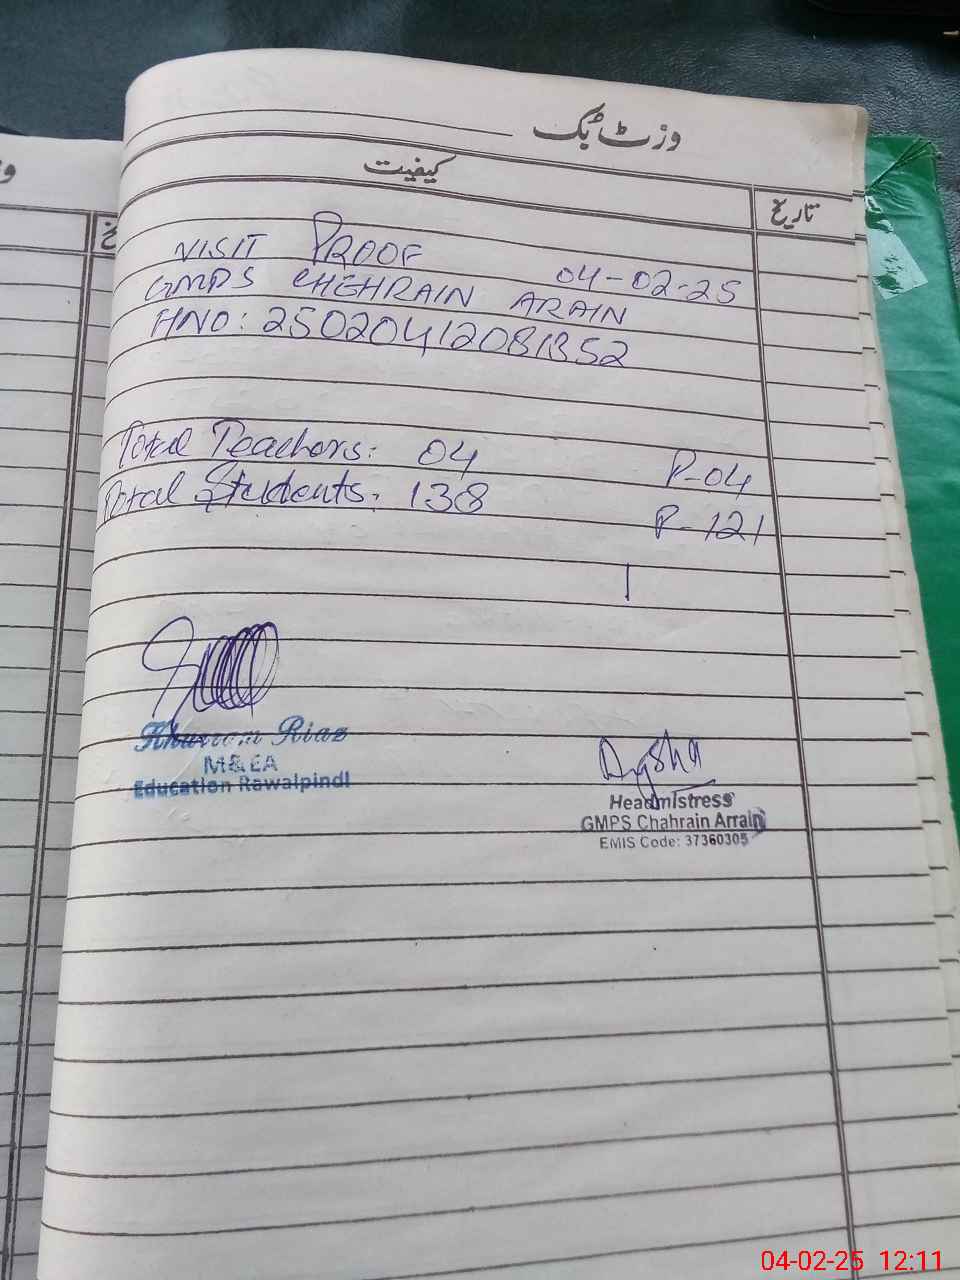 وزٹ بک
کیفیت
تاریخ
VISIT PROOF 04-02-25
GMPS CHEHRAIN ARAIN
HNO: 25020412081352
Total Teachers: 04 P-04
Total Students: 138 P-121
Khurram Riaz
M&EA
Education Rawalpindi
Headmistress
GMPS Chahrain Arrain
EMIS Code: 37360305
04-02-25 12:11